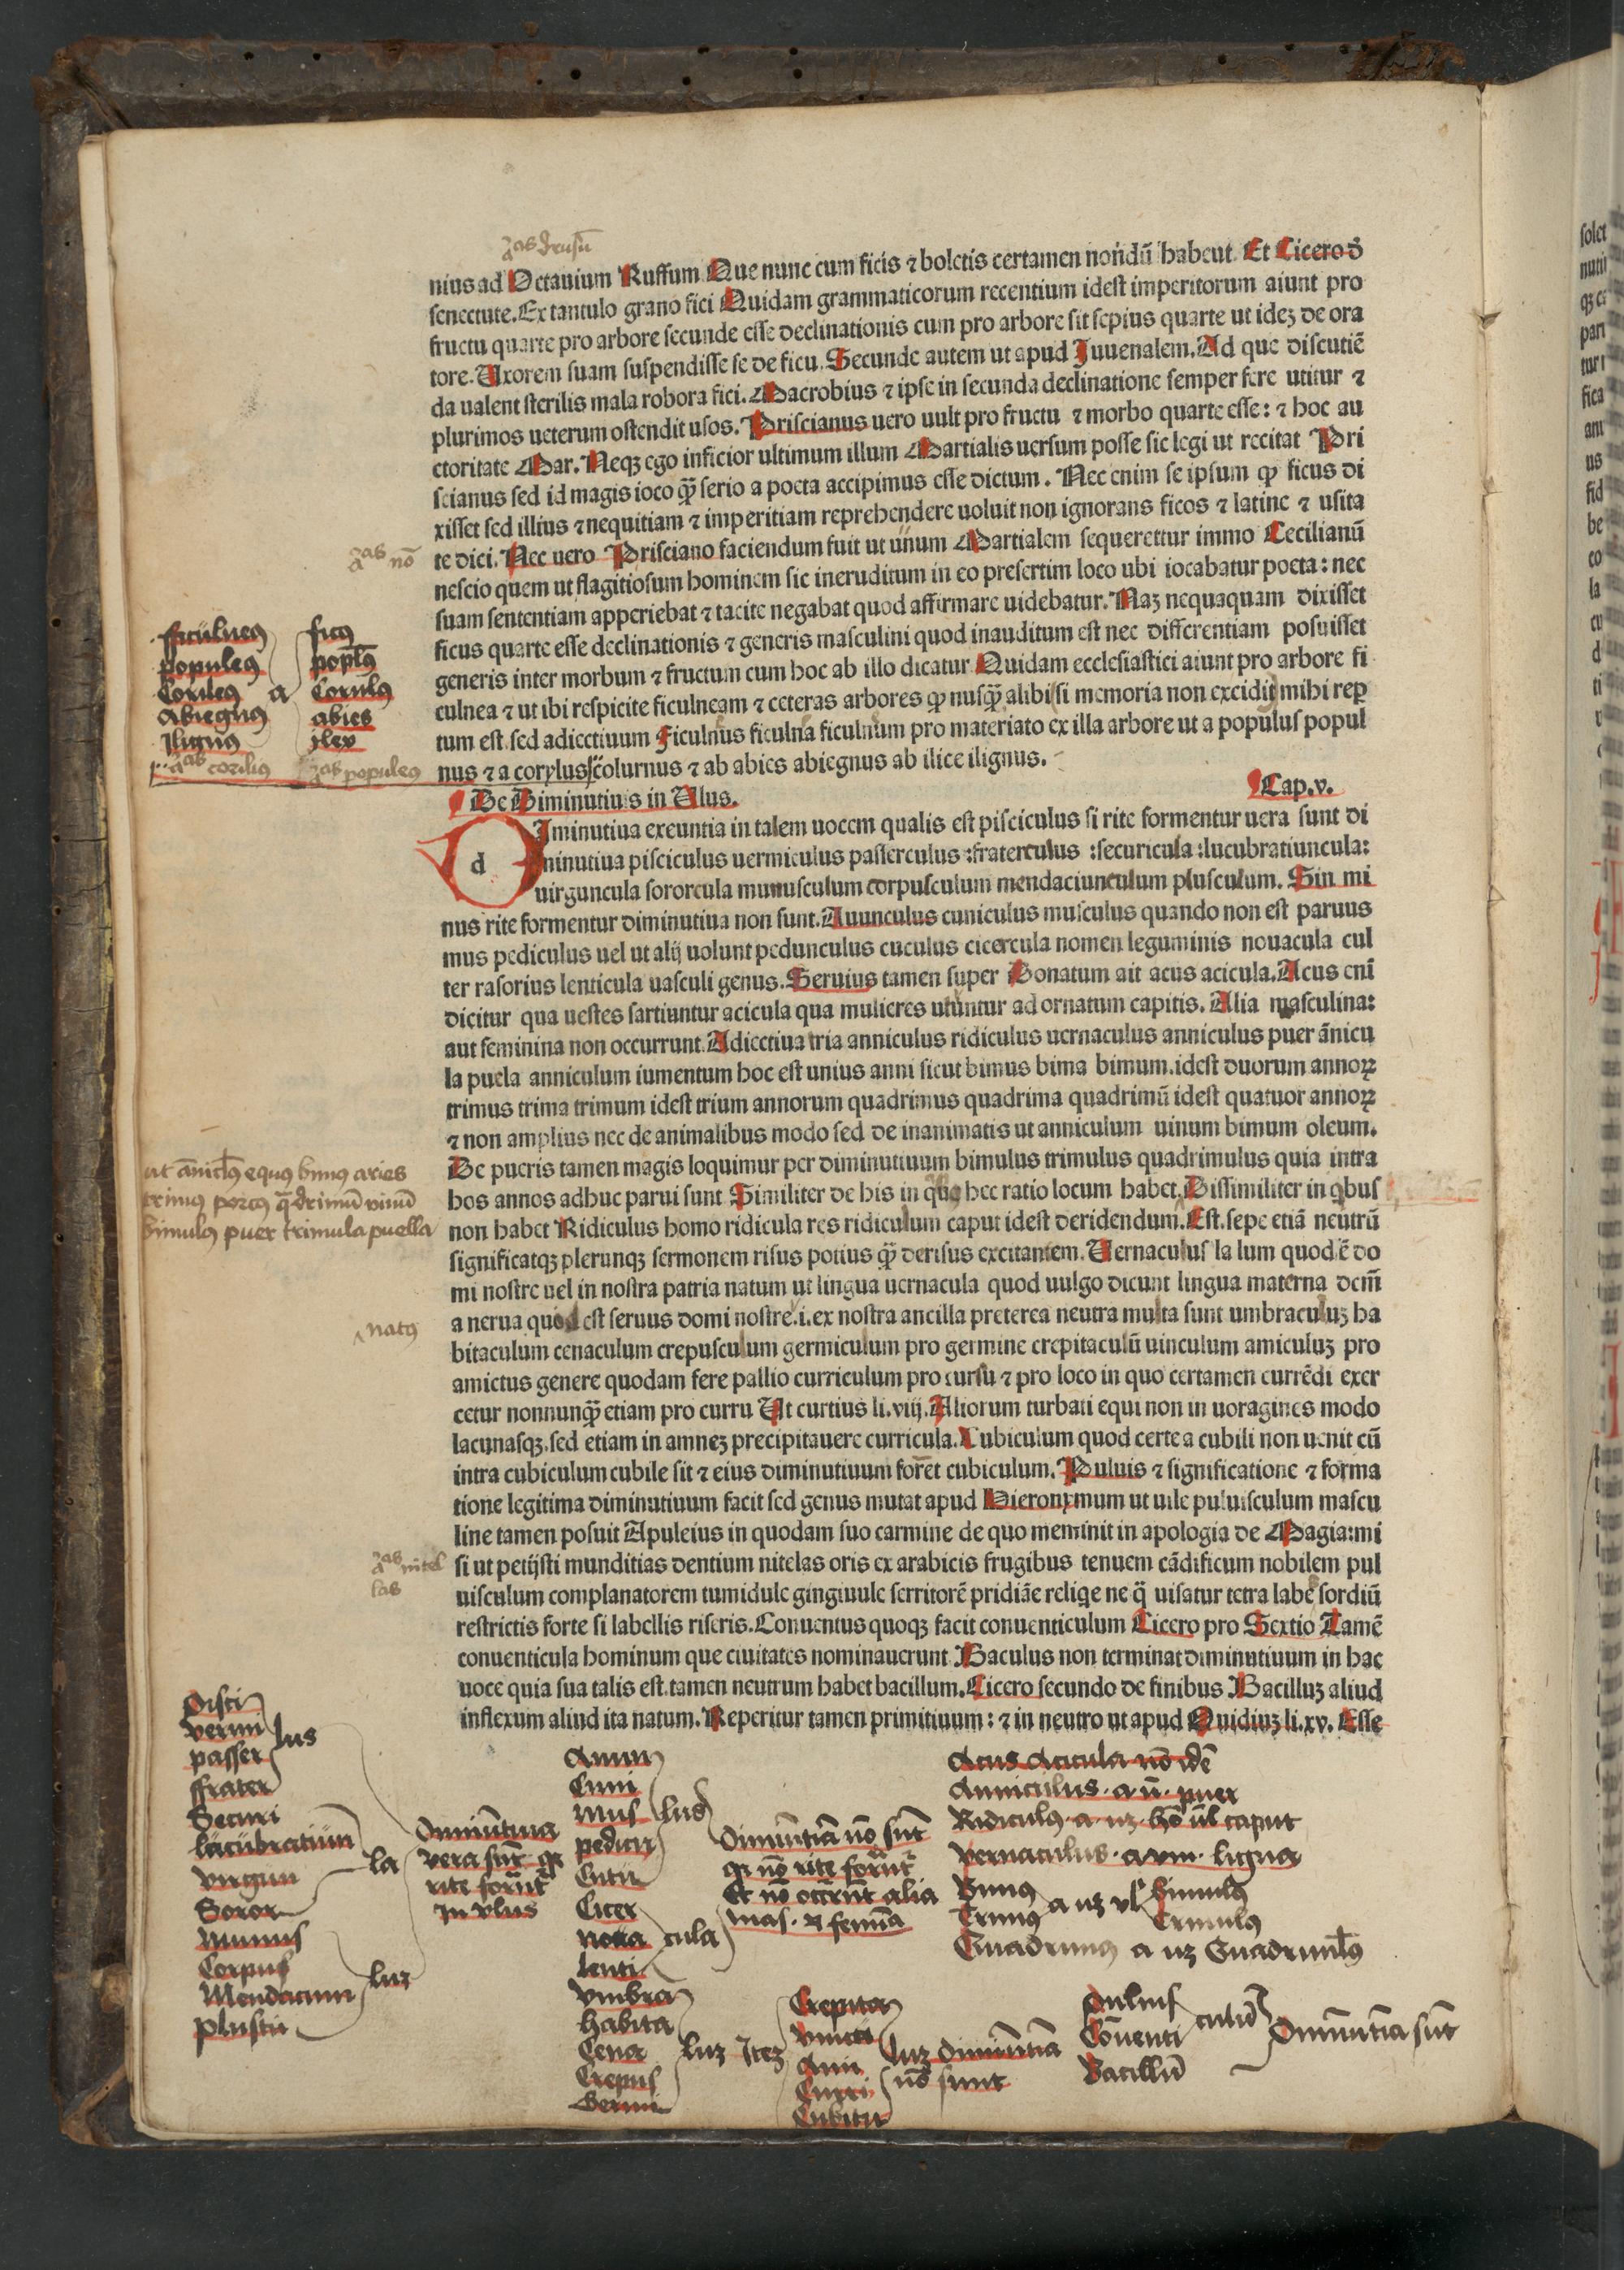 nius ad Octauium Ruffum Que nunc cum ficis ⁊ boletis certamen nondū habent. Et Cicero d̄
senectute. Ex tantulo grano fici Quidam grammaticorum recentium idest imperitorum aiunt pro
fructu quarte pro arbore secunde esse declinationis cum pro arbore sit sepius quarte ut ideʒ de ora
tore. Uxorem suam suspendisse se de ficu. Secunde autem ut apud Iuuenalem. Ad que discutiē
da ualent sterilis mala robora fici. Macrobius ⁊ ipse in secunda declinatione semper fere utitur ⁊
plurimos ueterum ostendit usos. Priscianus uero uult pro fructu ⁊ morbo quarte esse: ⁊ hoc au
ctoritate Mar. Neqʒ ego inficior ultimum illum Martialis uersum posse sic legi ut recitat Pri
scianus sed id magis ioco qꝫ̄ serio a poeta accipimus esse dictum. Nec enim se ipsum ꝙ ficus di
xisset sed illius ⁊ nequitiam ⁊ imperitiam reprehendere uoluit non ignorans ficos ⁊ latine ⁊ usita
te dici. Nec uero Prisciano faciendum fuit ut unum Martialem sequerettur immo Cecilianū
nescio quem ut flagitiosum hominem sic ineruditum in eo presertim loco ubi iocabatur poeta: nec
suam sententiam apperiebat ⁊ tacite negabat quod affirmare uidebatur. Naʒ nequaquam dixisset
ficus quarte esse declinationis ⁊ generis masculini quod inauditum est nec differentiam posuisset
generis inter morbum ⁊ fructum cum hoc ab illo dicatur Quidam ecclesiastici aiunt pro arbore fi
culnea ⁊ ut ibi respicite ficulneam ⁊ ceteras arbores ꝙ nusqꝫ̄ alibi si memoria non excidit mihi reꝑ
tum est. sed adiectiuum Ficulnus ficulna ficulnum pro materiato ex illa arbore ut a populus popul
nus ⁊ a corylus colurnus ⁊ ab abies abiegnus ab ilice ilignus.
De Diminutiuis in Ulus. Cap.v.
d Iminutiua exeuntia in talem uocem qualis est pisciculus si rite formentur uera sunt di
minutiua pisciculus uermiculus passerculus :fraterculus :securicula :lucubratiuncula:
uirguncula sororcula munusculum corpusculum mendaciunculum plusculum. Sin mi
nus rite formentur diminutiua non sunt. Auunculus cuniculus musculus quando non est paruus
mus pediculus uel ut alij uolunt pedunculus cuculus cicercula nomen leguminis nouacula cul
ter rasorius lenticula uasculi genus. Seruius tamen super Donatum ait acus acicula. Acus enī
dicitur qua uestes sartiuntur acicula qua mulieres utuntur ad ornatum capitis. Alia masculina:
aut feminina non occurrunt. Adiectiua tria anniculus ridiculus uernaculus anniculus puer ānicu
la puela anniculum iumentum hoc est unius anni sicut bimus bima bimum. idest duorum annoꝝ
trimus trima trimum idest trium annorum quadrimus quadrima quadrimū idest quatuor annoꝝ
⁊ non amplius nec de animalibus modo sed de inanimatis ut anniculum uinum bimum oleum.
De pueris tamen magis loquimur per diminutiuum bimulus trimulus quadrimulus quia intra
hos annos adhuc parui sunt Similiter de his in quibus hec ratio locum habet. Dissimiliter in qbus
non habet Ridiculus homo ridicula res ridiculum caput idest deridendum. Est. sepe etiā neutrū
significatqʒ plerunqʒ sermonem risus potius qꝫ̄ derisus excitantem. Uernaculus la lum quod ē do
mi nostre uel in nostra patria natum ut lingua uernacula quod uulgo dicunt lingua materna dem̄
a nerua quod est seruus domi nostre. i. ex nostra ancilla preterea neutra multa sunt umbraculuʒ ha
bitaculum cenaculum crepusculum germiculum pro germine crepitaculū uinculum amiculuʒ pro
amictus genere quodam fere pallio curriculum pro cursu ⁊ pro loco in quo certamen currēdi exer
cetur nonnunqꝫ̄ etiam pro curru Ut curtius li. viij. Aliorum turbati equi non in uoragines modo
lacunasqʒ. sed etiam in amneʒ precipitauere curricula. Cubiculum quod certe a cubili non uenit cū
intra cubiculum cubile sit ⁊ eius diminutiuum foret cubiculum. Puluis ⁊ significatione ⁊ forma
tione legitima diminutiuum facit sed genus mutat apud Hieronymum ut uile puluisculum mascu
line tamen posuit Apuleius in quodam suo carmine de quo meminit in apologia de Magia: mi
si ut petijsti munditias dentium nitelas oris ex arabicis frugibus tenuem cādificum nobilem pul
uisculum complanatorem tumidule gingiuule ferritorē pridiāe reliqe ne q̄ uisatur tetra labe sordiū
restrictis forte si labellis riseris. Conuentus quoqʒ facit conuenticulum Cicero pro Sextio Tamē
conuenticula hominum que ciuitates nominauerunt Baculus non terminat diminutiuum in hac
uoce quia sua talis est. tamen neutrum habet bacillum. Cicero secundo de finibus Bacilluʒ aliud
inflexum aliud ita natum. Reperitur tamen primitiuum: ⁊ in neutro ut apud Ouidiuʒ li. xv. Esse
ficulneus ficus
populeus poplus
Corileus a Corulus
Abiegnus abies
Ilignus ilex
corilius populeus
at āniclus equus bimus aries
trimus porcus qdrimū vinū
bimulus puer trimula puella
natus
nitel
las
Pisci
vermi lus
passer
ffrater
Securi
lucubratiun
virgun la
Soror
Munus
Corpus luʒ
Mendaciun
Pluscu
Diminutiua
vera sūt qʒ
rite formt
in vlus
Auun
Cuni
Mus lus
pedicu
Cucu
Cicer
noua cula
lenti
Diminutiā nō sūt
qʒ nō rite format
Et nō occrūt alia
mas. ⁊ femīa
Acus Acicula nō idē
Anniculus. a. ū. puer
Ridiculus. a. uʒ. hō ūl caput
Vernaculus. a um. ligua
Bimus a uʒ vl bimulus
Trimus Trimulus
Quadrimus a uʒ Quadrimlus
Vmbra
habita
Cena luʒ Iteʒ
Crepus
Germi
Crepita
vinci
Ami luʒ diminutiā
Curri nō sunt
Cubicu
Puluis
Cōuenti culū Diminutia sūt
Bacillū